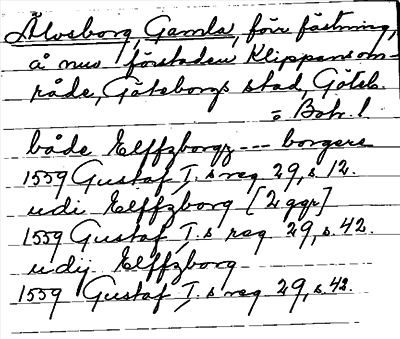 Älvsborg, Gamla, förr fästning,
å nuv. förstaden Klippans om-
råde, Göteborgs stad, Göteb.
o Boh. l.
både Elffzborgz --- borgere
1559 Gustaf I:s reg 29, s. 12.
udi Elffzborg [2 ggr]
1559 Gustaf I:s reg 29, s. 42.
udij Elffzborg
1559 Gustaf I:s reg 29, s. 42.